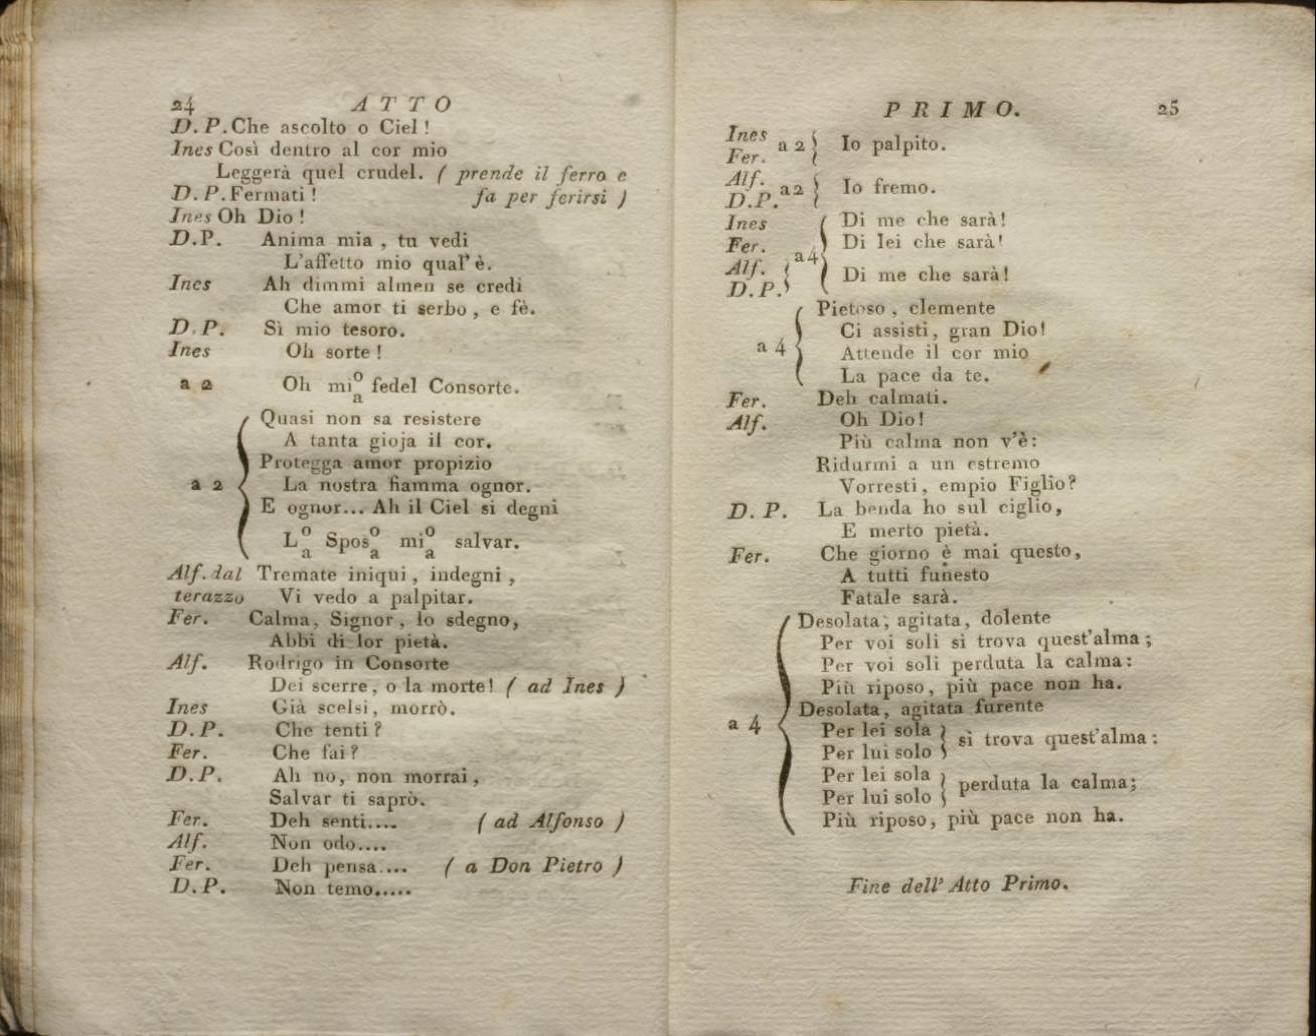 24 ATTO
D. P. Che ascolto o Ciel !
Ines Così dentro al cor mio
Leggerà quel crudel. ( prende il ferro e
D. P. Fermati ! fa per ferirsi )
Ines Oh Dio !
D.P. Anima mia , tu vedi
L'affetto mio qual' è.
Ines Ah dimmi almen se credi
Che amor ti serbo , e fè.
D. P. Sì mio tesoro.
Ines Oh sorte !
a 2 Oh mi o/a fedel Consorte.
Quasi non sa resistere
A tanta gioja il cor.
Protegga amor propizio
a 2 La nostra fiamma ognor.
E ognor... Ah il Ciel si degni
L o/a Spos o/a mi o/a salvar.
Alf. dal Tremate iniqui , indegni ,
terazzo Vi vedo a palpitar.
Fer. Calma, Signor, lo sdegno,
Abbi di lor pietà.
Alf. Rodrigo in Consorte
Dei scerre, o la morte! ( ad Ines )
Ines Già scelsi, morrò.
D. P. Che tenti ?
Fer. Che fai ?
D.P. Ah no, non morrai ,
Salvar ti saprò.
Fer. Deh senti.... ( ad Alfonso )
Alf. Non odo....
Fer. Deh pensa.... ( a Don Pietro )
D. P. Non temo.....
PRIMO. 25
Ines
Fer. a 2 Io palpito.
Alf.
D.P. a2 Io fremo.
Ines Di me che sarà!
Fer. Di lei che sarà!
a4
Alf.
D.P. Di me che sarà!
Pietoso , clemente
Ci assisti, gran Dio!
a 4 Attende il cor mio
La pace da te.
Fer. Deh calmati.
Alf. Oh Dio!
Più calma non v'è:
Ridurmi a un estremo
Vorresti, empio Figlio?
D. P. La benda ho sul ciglio,
E merto pietà.
Fer. Che giorno è mai questo,
A tutti funesto
Fatale sarà.
Desolata, agitata, dolente
Per voi soli si trova quest'alma ;
Per voi soli perduta la calma:
Più riposo, più pace non ha.
Desolata, agitata furente
a 4 Per lei sola
Per lui solo sì trova quest'alma :
Per lei sola
Per lui solo perduta la calma;
Più riposo, più pace non ha.
Fine dell' Atto Primo.